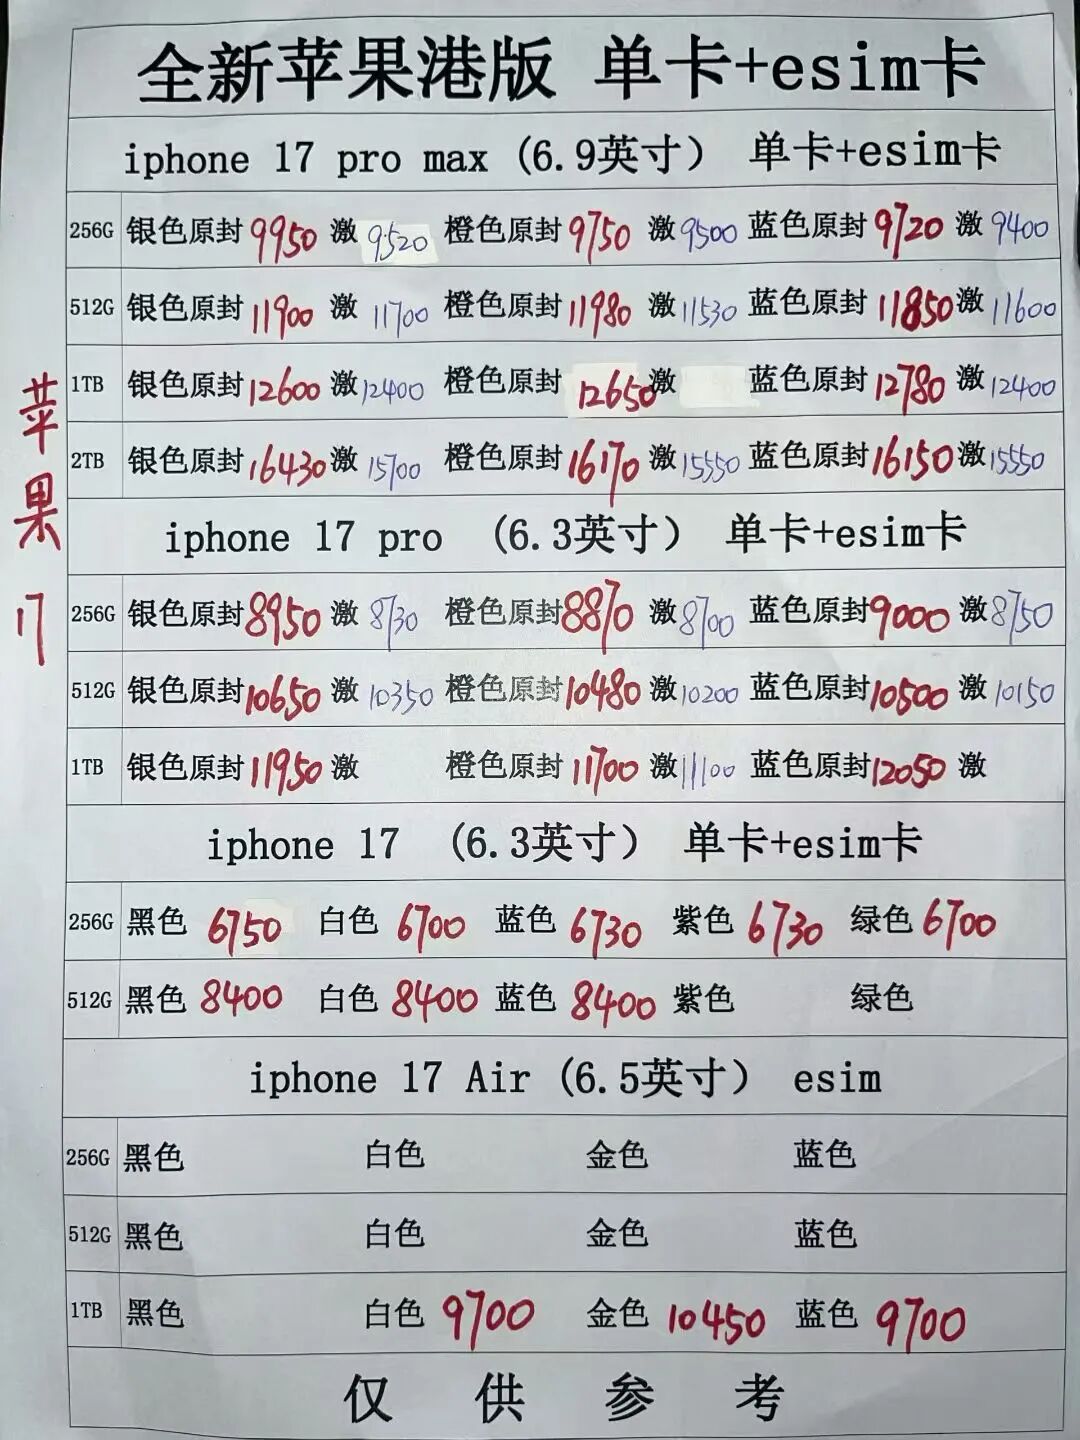 全新苹果港版 单卡+esim卡
iphone 17 pro max (6.9英寸) 单卡+esim卡
256G 银色原封 9950 激 9520 橙色原封 9750 激 9500 蓝色原封 9720 激 9400
512G 银色原封 11900 激 11700 橙色原封 11980 激 11530 蓝色原封 11850 激 11600
1TB 银色原封 12600 激 12400 橙色原封 12650 激 蓝色原封 12780 激 12400
2TB 银色原封 16430 激 15700 橙色原封 16170 激 15550 蓝色原封 16150 激 15550
苹果17
iphone 17 pro (6.3英寸) 单卡+esim卡
256G 银色原封 8950 激 8730 橙色原封 8870 激 8700 蓝色原封 9000 激 8750
512G 银色原封 10650 激 10350 橙色原封 10480 激 10200 蓝色原封 10500 激 10150
1TB 银色原封 11950 激 橙色原封 11700 激 11100 蓝色原封 12050 激
iphone 17 (6.3英寸) 单卡+esim卡
256G 黑色 6750 白色 6700 蓝色 6730 紫色 6730 绿色 6700
512G 黑色 8400 白色 8400 蓝色 8400 紫色 绿色
iphone 17 Air (6.5英寸) esim
256G 黑色 白色 金色 蓝色
512G 黑色 白色 金色 蓝色
1TB 黑色 白色 9700 金色 10450 蓝色 9700
仅供参考